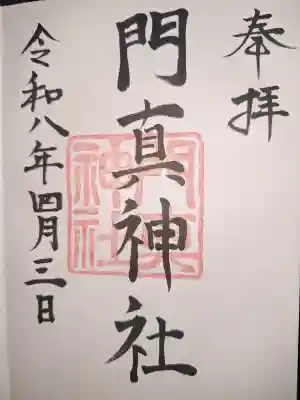 奉拝
門真神社
令和八年四月三日
門真神社